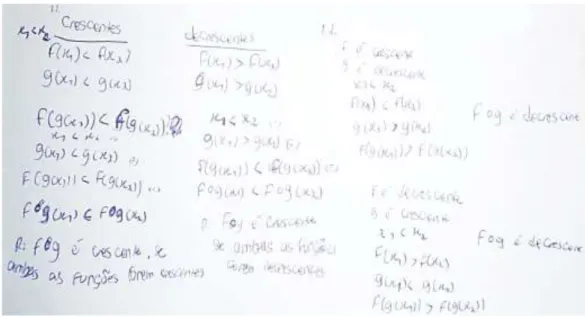 1.1.
Crescentes
x₁ < x₂
f(x₁) < f(x₂)
g(x₁) < g(x₂)
f(g(x₁)) < f(g(x₂))
x₁ < x₂
g(x₁) < g(x₂)
f(g(x₁)) < f(g(x₂))
fog(x₁) < fog(x₂)
R: fog é crescente, se
ambas as funções forem crescentes
decrescentes
f(x₁) > f(x₂)
g(x₁) > g(x₂)
x₁ < x₂
g(x₁) > g(x₂)
f(g(x₁)) < f(g(x₂))
fog(x₁) < fog(x₂)
R: fog é crescente
se ambas as funções
forem decrescentes
1.2.
f é crescente
g é decrescente
x₁ < x₂
f(x₁) < f(x₂)
g(x₁) > g(x₂)
f(g(x₁)) > f(g(x₂))
fog é decrescente
f é decrescente
g é crescente
x₁ < x₂
f(x₁) > f(x₂)
g(x₁) < g(x₂)
f(g(x₁)) > f(g(x₂))
fog é decrescente